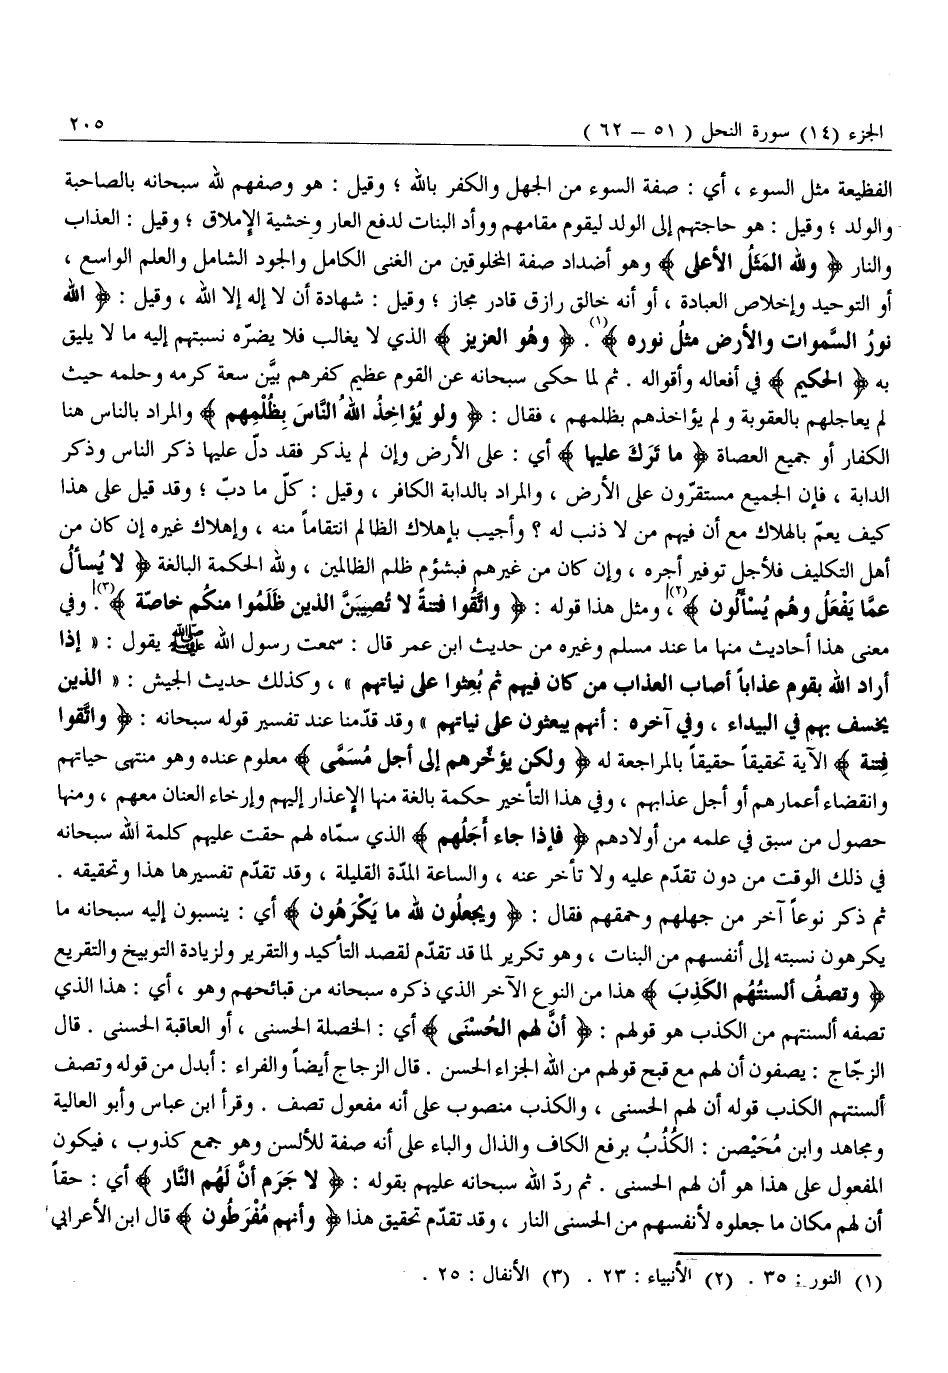 الجزء (١٤) سورة النحل ( ٥١ – ٦٢ )
٢٠٥
الفظيعة مثل السوء ، أي : صفة السوء من الجهل والكفر بالله ؛ وقيل : هو وصفهم لله سبحانه بالصاحبة
والولد ؛ وقيل : هو حاجتهم إلى الولد ليقوم مقامهم ووأد البنات لدفع العار وخشية الإملاق ؛ وقيل : العذاب
والنار ﴿ ولله المَثَلُ الأعلى ﴾ وهو أضداد صفة المخلوقين من الغنى الكامل والجود الشامل والعلم الواسع ،
أو التوحيد وإخلاص العبادة ، أو أنه خالق رازق قادر مجاز ؛ وقيل : شهادة أن لا إله إلا الله ، وقيل : ﴿ الله
نورُ السَّموات والأرض مثلُ نوره ﴾(١) . ﴿ وهُو العزيز ﴾ الذي لا يغالب فلا يضرّه نسبتهم إليه ما لا يليق
به ﴿ الحكيم ﴾ في أفعاله وأقواله . ثم لما حكى سبحانه عن القوم عظيم كفرهم بيَّن سعة كرمه وحلمه حيث
لم يعاجلهم بالعقوبة و لم يؤاخذهم بظلمهم ، فقال : ﴿ ولو يُؤاخِذُ اللهُ النَّاسَ بِظُلْمِهم ﴾ والمراد بالناس هنا
الكفار أو جميع العصاة ﴿ ما تَرَكَ عليها ﴾ أي : على الأرض وإن لم يذكر فقد دلّ عليها ذكر الناس وذكر
الدابة ، فإن الجميع مستقرّون على الأرض ، والمراد بالدابة الكافر ، وقيل : كلّ ما دبّ ؛ وقد قيل على هذا
كيف يعمّ بالهلاك مع أن فيهم من لا ذنب له ؟ وأجيب بإهلاك الظالم انتقاماً منه ، وإهلاك غيره إن كان من
أهل التكليف فلأجل توفير أجره ، وإن كان من غيرهم فبشؤم ظلم الظالمين ، ولله الحكمة البالغة ﴿ لا يُسألُ
عمَّا يَفْعَلُ وهُم يُسْألُون ﴾(٢) ، ومثل هذا قوله : ﴿ واتَّقُوا فتنةً لا تُصِيبَنَّ الذين ظَلَمُوا منكُم خاصّة ﴾(٣) . وفي
معنى هذا أحاديث منها ما عند مسلم وغيره من حديث ابن عمر قال : سمعت رسول الله ﷺ يقول : « إذا
أراد الله بقوم عذاباً أصاب العذاب من كان فيهم ثم بُعِثوا على نياتهم » ، وكذلك حديث الجيش : « الذين
يخسف بهم في البيداء ، وفي آخره : أنهم يبعثون على نياتهم » وقد قدّمنا عند تفسير قوله سبحانه : ﴿ واتَّقوا
فِتنة ﴾ الآية تحقيقاً حقيقاً بالمراجعة له ﴿ ولكن يؤخّرهم إلى أجل مُسَمَّى ﴾ معلوم عنده وهو منتهى حياتهم
وانقضاء أعمارهم أو أجل عذابهم ، وفي هذا التأخير حكمة بالغة منها الإعذار إليهم وإرخاء العنان معهم ، ومنها
حصول من سبق في علمه من أولادهم ﴿ فإذا جاء أَجَلُهم ﴾ الذي سمّاه لهم حقت عليهم كلمة الله سبحانه
في ذلك الوقت من دون تقدّم عليه ولا تأخر عنه ، والساعة المدّة القليلة ، وقد تقدّم تفسيرها هذا وتحقيقه .
ثم ذكر نوعاً آخر من جهلهم وحمقهم فقال : ﴿ ويجعلُون لله ما يَكْرَهُون ﴾ أي : ينسبون إليه سبحانه ما
يكرهون نسبته إلى أنفسهم من البنات ، وهو تكرير لما قد تقدّم لقصد التأكيد والتقرير ولزيادة التوبيخ والتقريع
﴿ وتصفُ ألسنتُهُم الكَذِبَ ﴾ هذا من النوع الآخر الذي ذكره سبحانه من قبائحهم وهو ، أي : هذا الذي
تصفه ألسنتهم من الكذب هو قولهم : ﴿ أنَّ لهم الحُسْنَى ﴾ أي : الخصلة الحسنى ، أو العاقبة الحسنى . قال
الزجّاج : يصفون أن لهم مع قبح قولهم من الله الجزاء الحسن . قال الزجاج أيضاً والفراء : أبدل من قوله وتصف
ألسنتهم الكذب قوله أن لهم الحسنى ، والكذب منصوب على أنه مفعول تصف . وقرأ ابن عباس وأبو العالية
ومجاهد وابن مُحَيْصن : الكُذُبُ برفع الكاف والذال والباء على أنه صفة للألسن وهو جمع كذوب ، فيكون
المفعول على هذا هو أن لهم الحسنى . ثم ردّ الله سبحانه عليهم بقوله : ﴿ لا جَرَم أنَّ لَهُم النَّار ﴾ أي : حقاً
أن لهم مكان ما جعلوه لأنفسهم من الحسنى النار ، وقد تقدّم تحقيق هذا ﴿ وأنهم مُفْرَطُون ﴾ قال ابن الأعرابي
(١) النور : ٣٥ . (٢) الأنبياء : ٢٣ . (٣) الأنفال : ٢٥ .